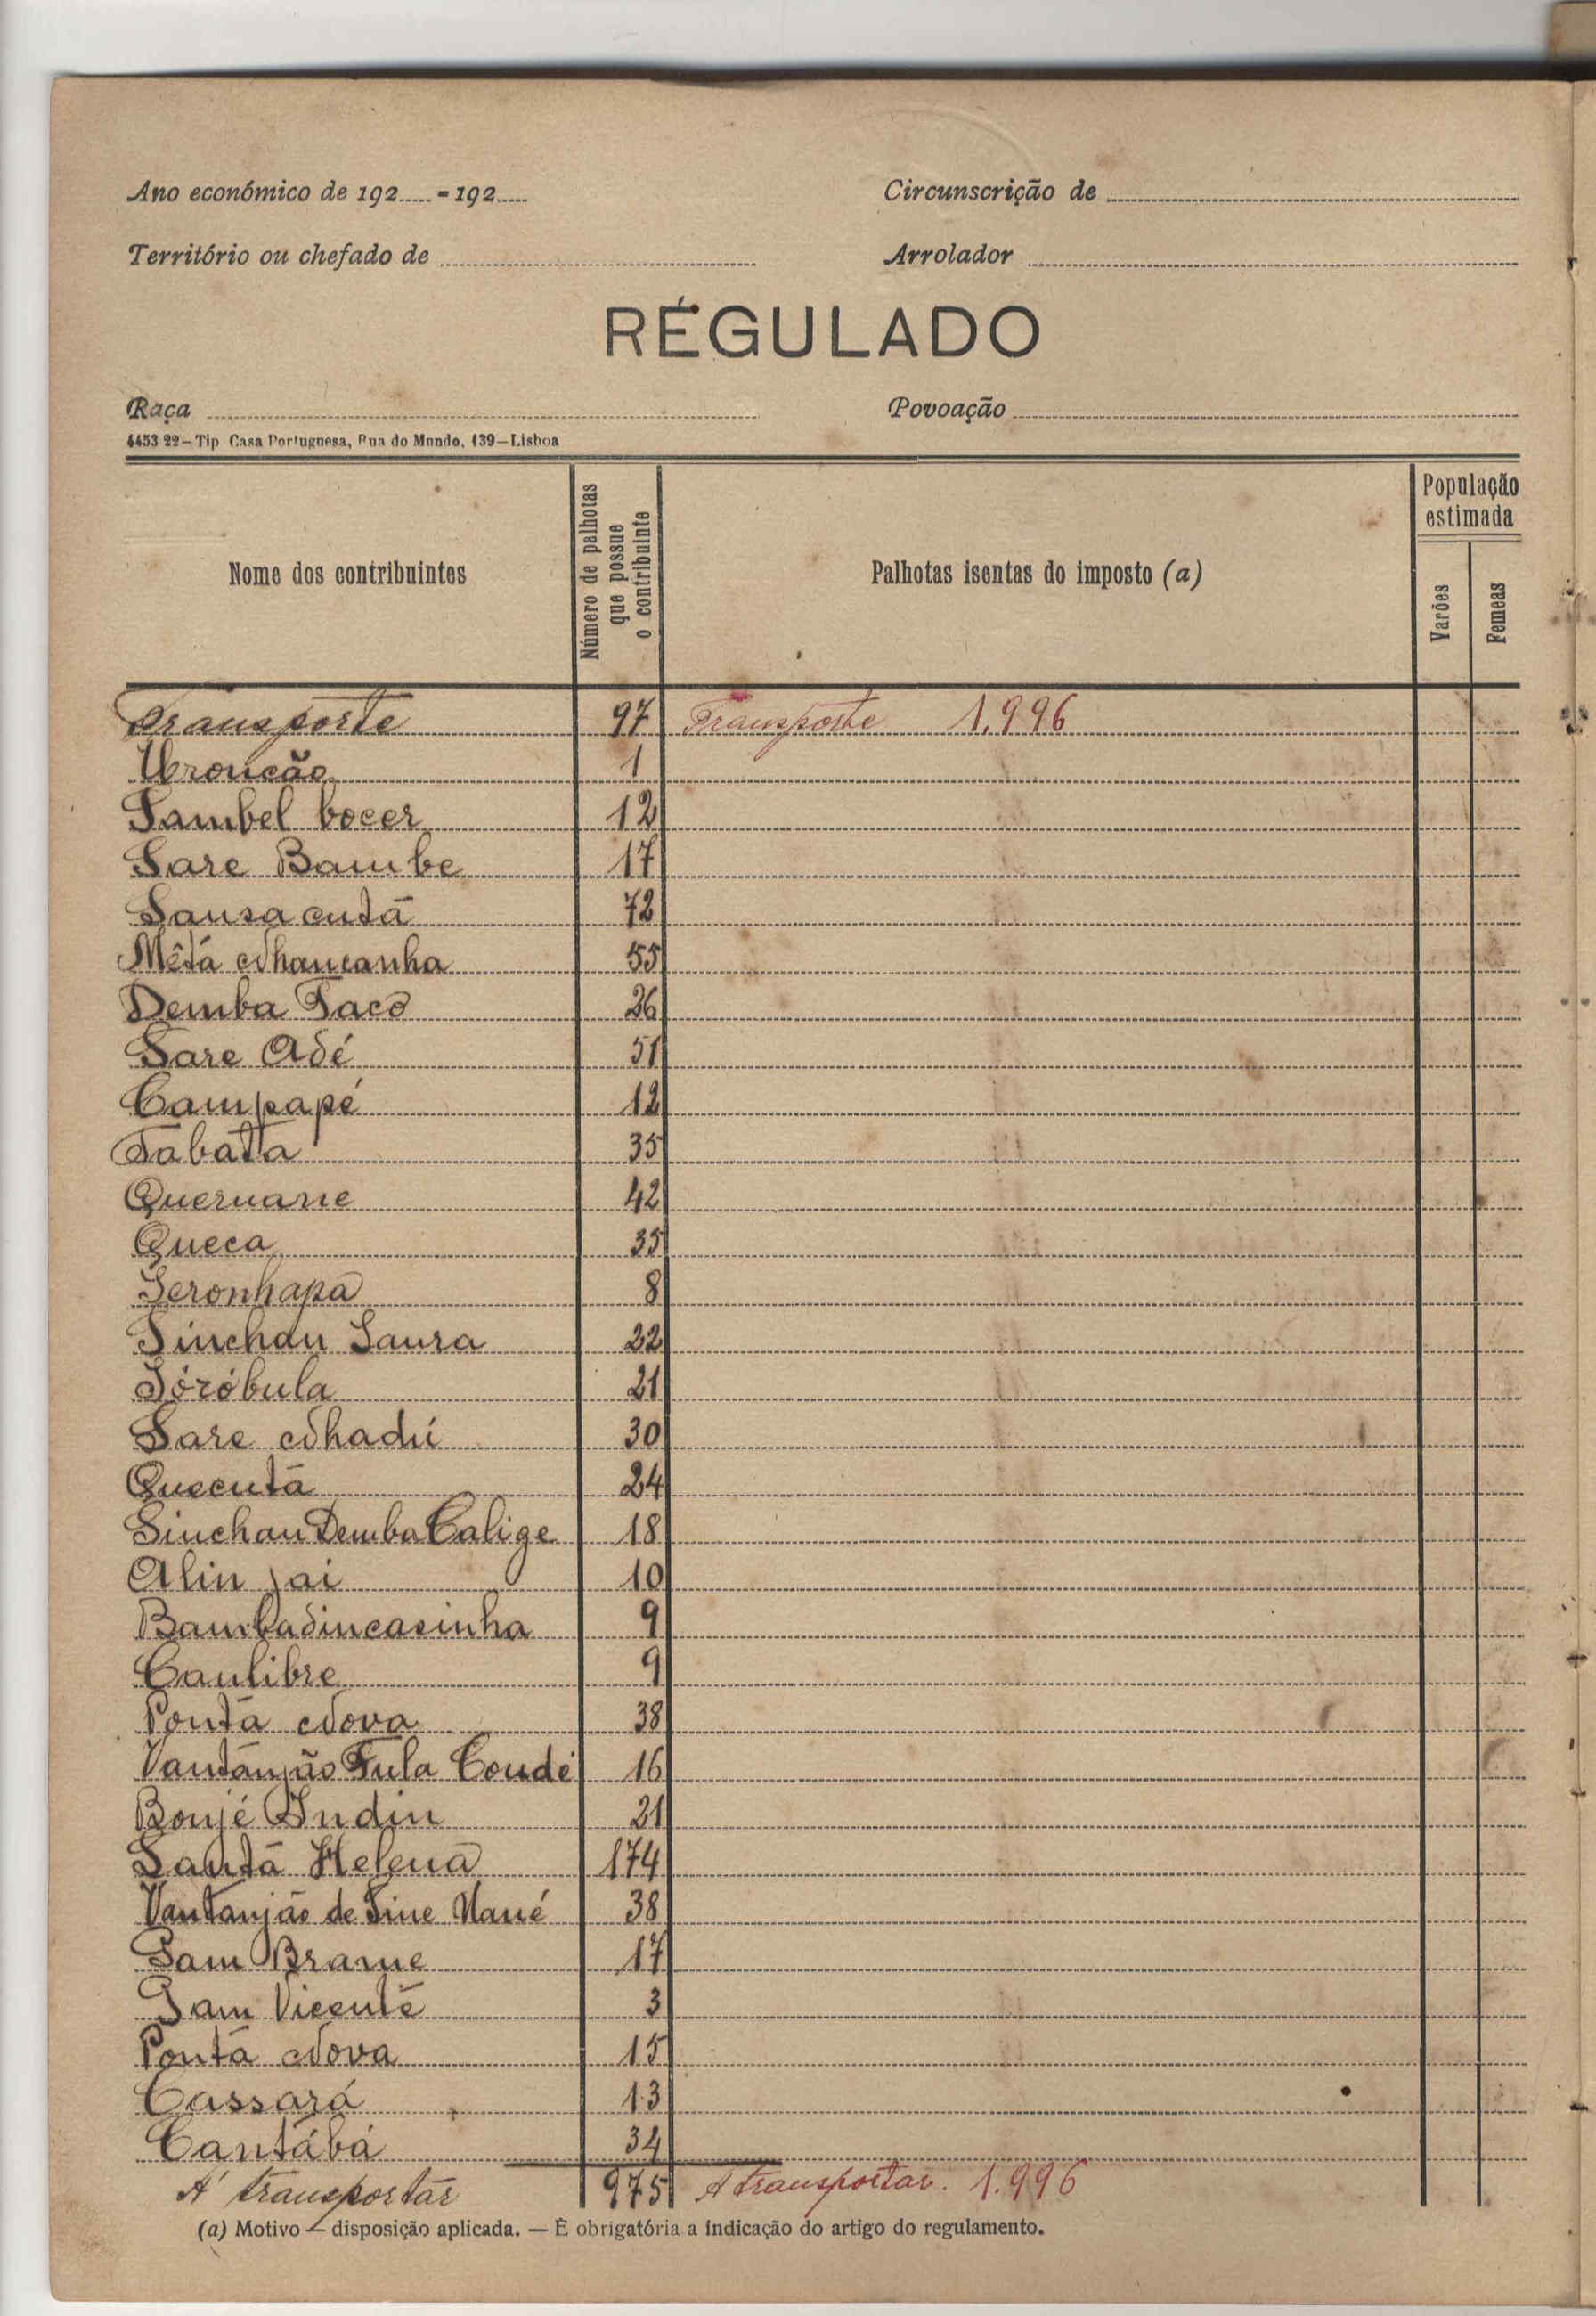 Ano económico de 192.....-192.....
Circunscrição de
Território ou chefado de
Arrolador
RÉGULADO
Raça
Povoação
4453 22—Tip Casa Portuguesa, Rua do Mundo, 139—Lisboa
Nome dos contribuintes
Número de palhotas que possue o contribuinte
Palhotas isentas do imposto (a)
População estimada
Varões
Femeas
Transporte 97 Transporte 1.996
Uroncão 1
Sambel bocer 12
Sare Bambe 17
Sansa cutá 72
Mêtá Nhancanha 55
Demba Taco 26
Sare Adé 51
Campapé 12
Tabata 35
Queruane 42
Queca 35
Seronhapa 8
Sinchan Saura 22
Sóróbula 21
Sare Nhadú 30
Quecutá 24
Sinchan Demba Calige 18
Alin jai 10
Bambadincasinha 9
Canlibre 9
Ponta Nova 38
Vantanjão Fula Coudé 16
Bonjé Indin 21
Santa Helena 174
Vantanjão de Sine Nané 38
Sam Brame 17
Sam Vicente 3
Ponta Nova 15
Cassará 13
Cantábá 34
A' transportar 975 A transportar. 1.996
(a) Motivo — disposição aplicada. — É obrigatória a indicação do artigo do regulamento.